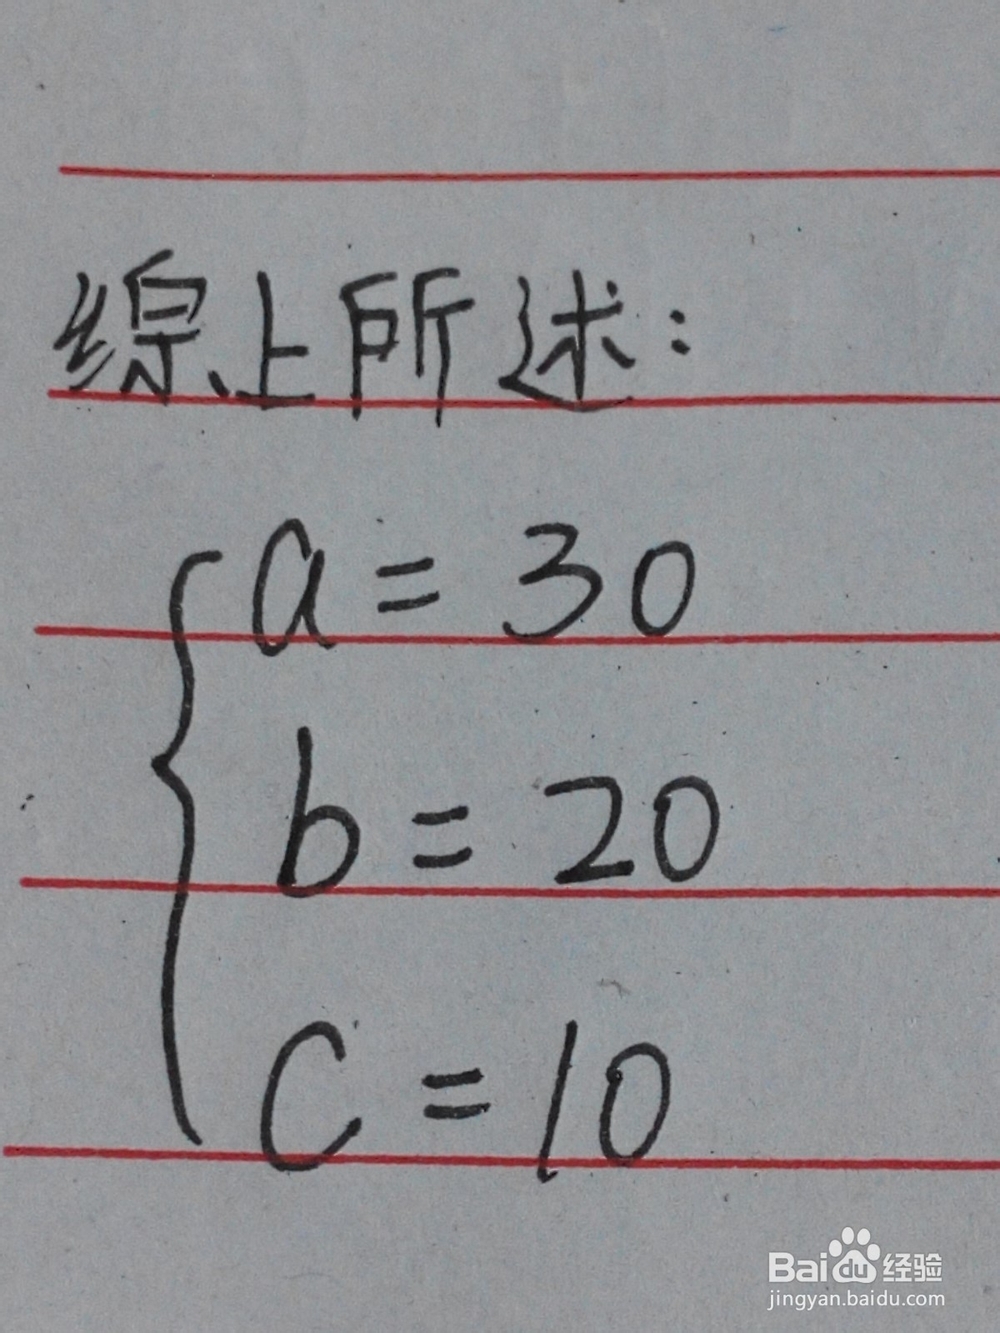 综上所述:
a = 30
b = 20
c = 10
Baidu经验
jingyan.baidu.com